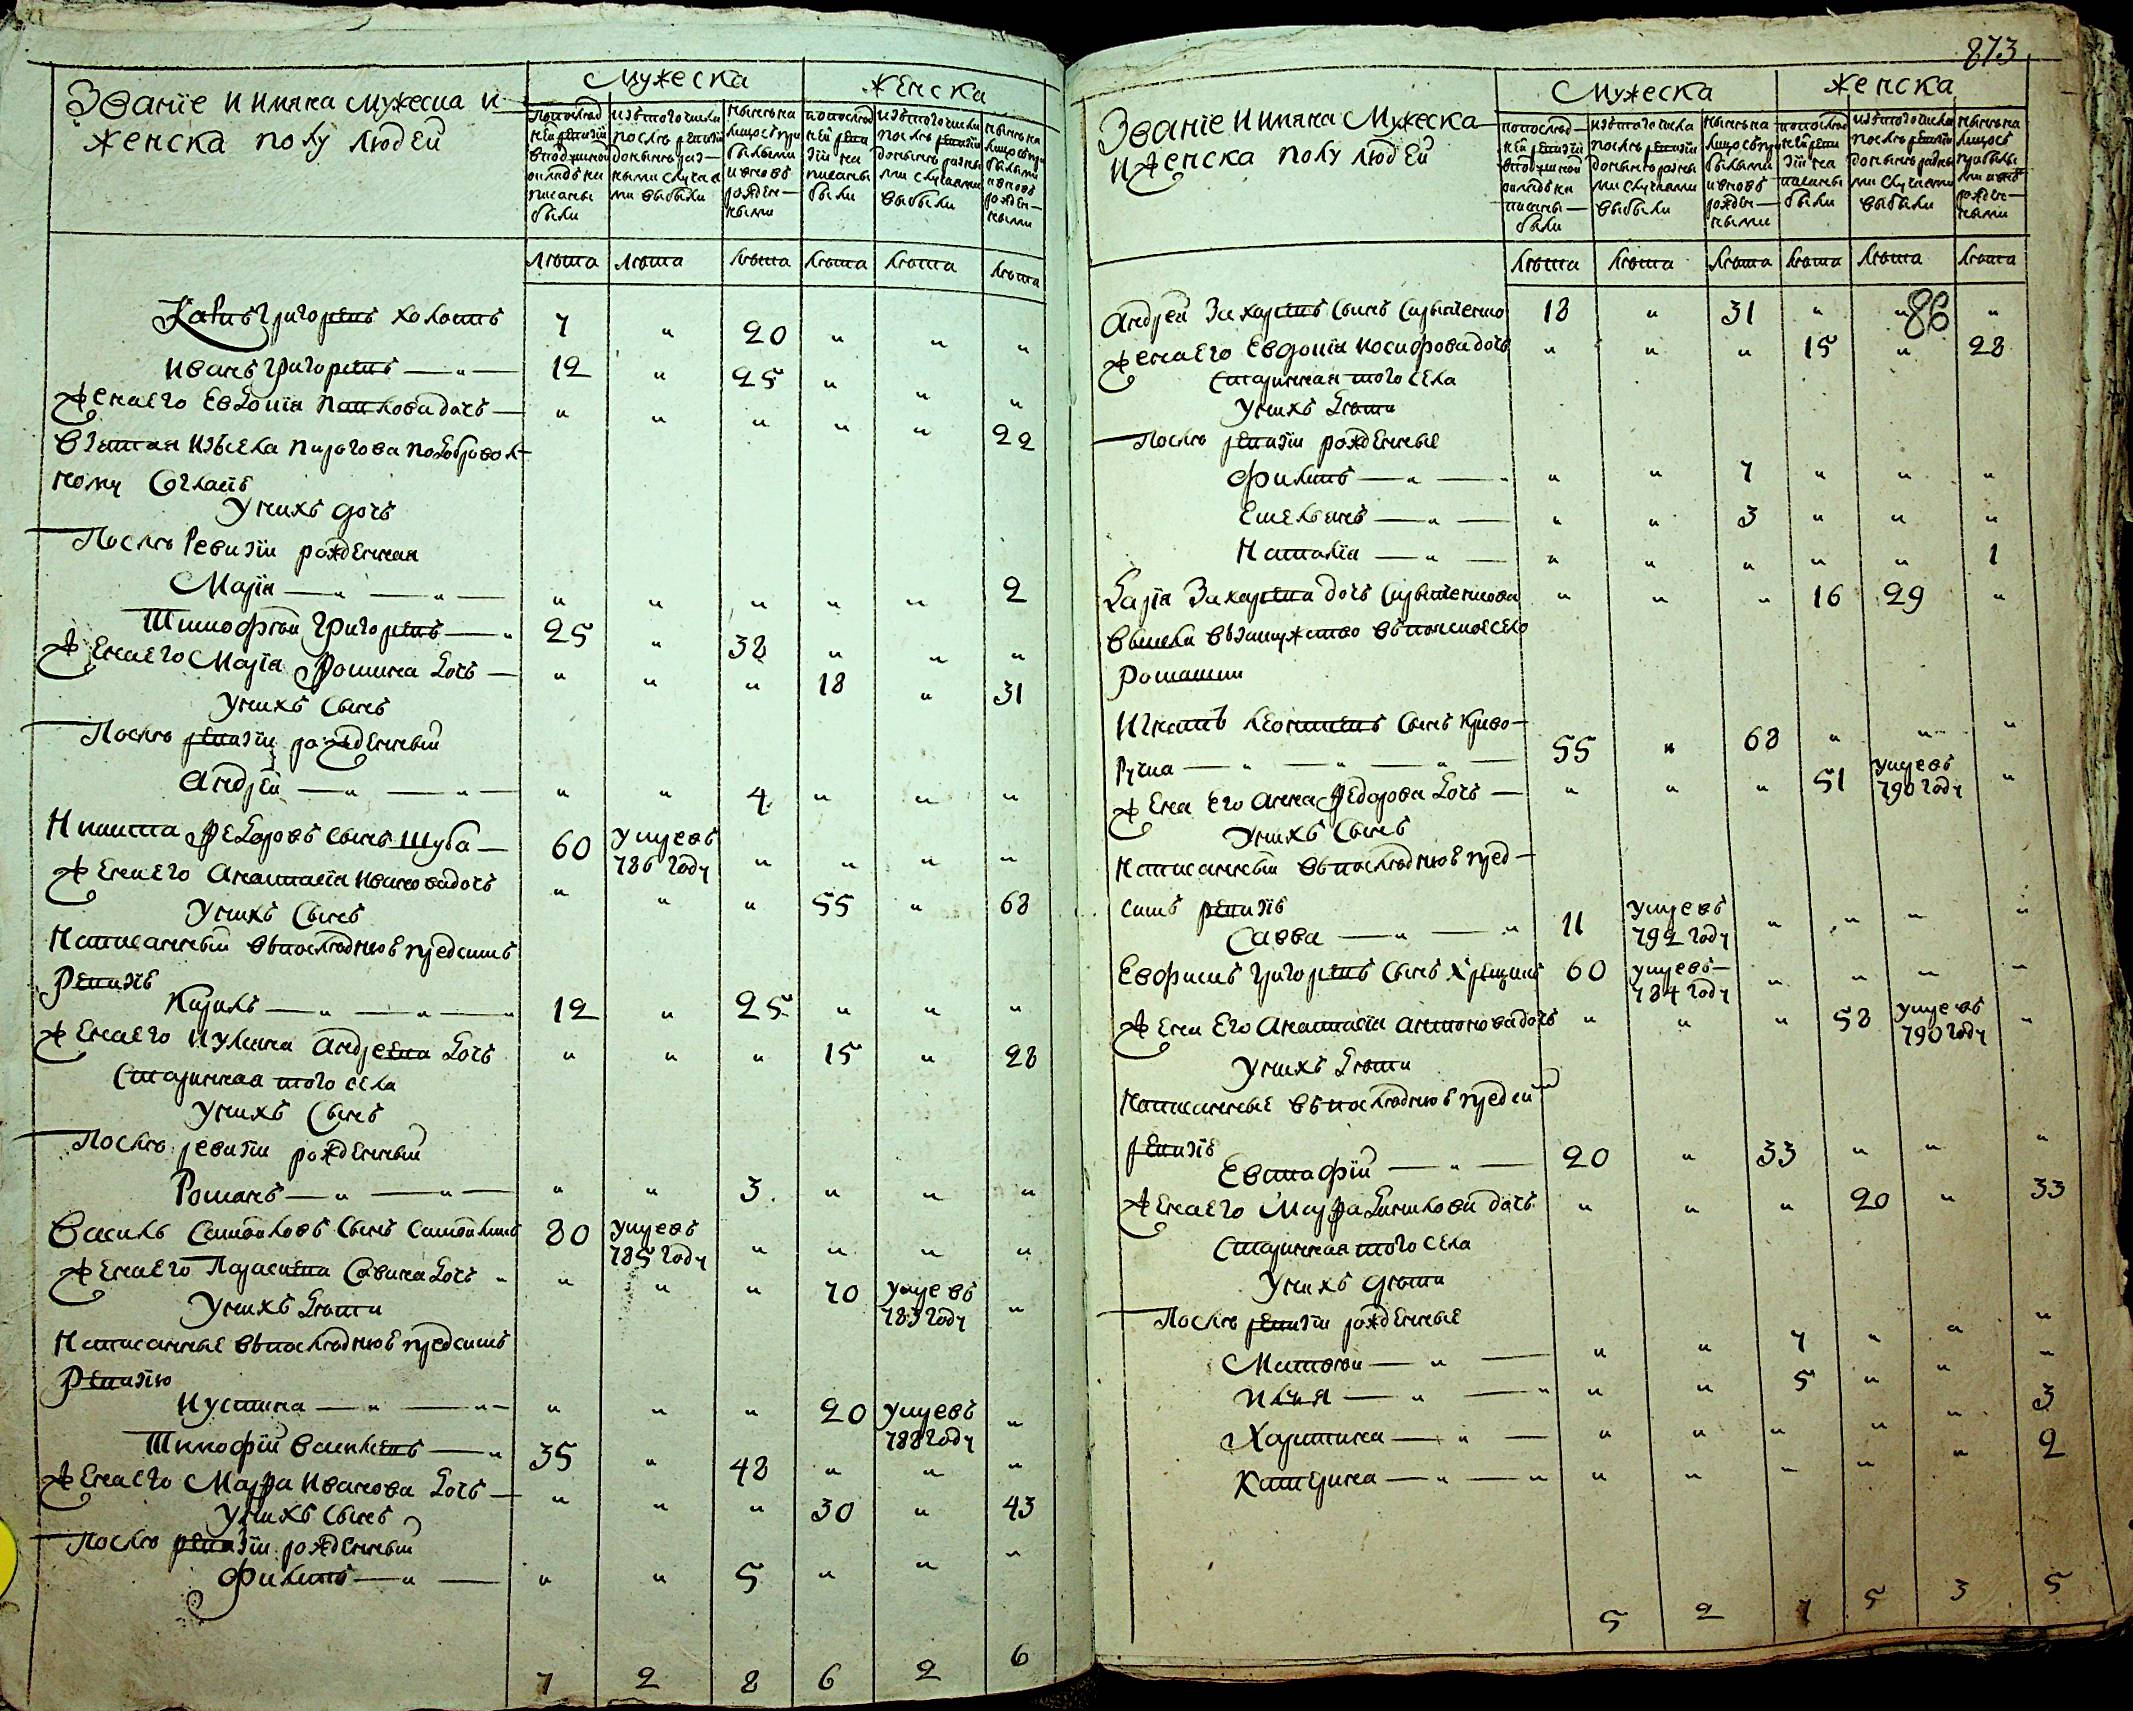 Званїе и имяна мужеска и
женска полу людей
Мужеска
Женска
попослед
ней ревизїи
вподушной
окладъ на
писаны
были
изътого числа
послѣ ревизїи
донынѣ раз—
ными случая
ми выбыли
нынѣ на
лицо спри
былыми
ивновь
рожден—
ными
попослед
ней реви
зїи на
писаны
были
изътого числа
послѣ ревизїи
донынѣ разны
ми случаями
выбыли
нынѣ на
лицо спри
былыми
ивновь
рожден—
ными
лѣта лѣта лѣта лѣта лѣта лѣта
Григорьевъ 7 " 20 " " "
Иванъ Григорьевъ — " — 12 " 25 " " "
Жена Его Евдокїя Павлова дочь — " " " " " 22
Взятая изъ села Пирогова подоброволь
ному согласїю
У нихъ дочь
Послѣ ревизїи рожденная
Марїя — " — " — " " " " " 2
Тимофѣй Григорьевъ — " 25 " 38 " " "
Жена Его Марїя Фомина дочь — " " " 18 " 31
У нихъ сынъ
Послѣ ревизїи рожденный
Андрѣй — " — " — " " 4 " " "
Никита Федоровъ сынъ Шуба — 60 умревъ 786 году " " " "
Жена Его Анастасїя Иванова дочь " " " 55 " 68
У нихъ сынъ
Написанный въпоследнюю предсимъ
Ревизїю
Кирилъ — " — " — " 12 " 25 " " "
Жена Его Улияна Андреева дочь " " " 15 " 28
Старинная того села
У нихъ сынъ
Послѣ ревизїи рожденный
Романъ — " — " — " " 3 " " "
Василь Самойловъ сынъ 80 умревъ 785 году " " " "
Жена Его Параскева Савина дочь " " " " 70 умревъ 783 году "
У нихъ дѣти
Написанные въпоследнюю предсимъ
Ревизїю
Иустина — " — " — " " " 20 умревъ 788 году "
Тимофїй Васильевъ — " 35 " 48 " " "
Жена Его Марфа Иванова дочь — " " " 30 " 43
У нихъ сынъ
Послѣ ревизїи рожденный
Филипъ — " — " " 5 " " "
7 2 8 6 2 6
873
Званїе и имяна Мужеска
и Женска полу людей
Мужеска
Женска
попослед—
ней ревизїи
вподушной
окладъ на
писаны—
были
изътого числа
послѣ ревизїи
донынѣ разны
ми случаями
выбыли
нынѣ на
лицо спри
былыми
ивновь
рожден—
ными
попослед
ней реви
зїи на
писаны
были
изътого числа
послѣ ревизїи
донынѣ разны
ми случаями
выбыли
нынѣ на
лицо съ
прибылы
ми ивновь
рожден—
ными
лѣта лѣта лѣта лѣта лѣта лѣта
Андрей Захарьевъ сынъ 18 " 31 " " 86 "
Жена Его Евдокїя Иосифова дочь " " " 15 " 28
Старинная того села
У нихъ дѣти
Послѣ ревизїи рожденные
Филипъ — " — " " " 7 " " "
Емельянъ — " — " " 3 " " "
Наталїя — " — " " " " " 1
Захарьева дочь " " " 16 29 "
Вышла взамужство село
Игнатъ Леонтїевъ сынъ Криво—
Ручка — " — " — " — 55 " 68 " " "
Жена Его Анна Федорова дочь — " " " 51 умревъ 790 году "
У нихъ сынъ
Написанный въпоследнюю пред—
симъ ревизїю
Савва — " — " 11 умревъ 792 году " " " "
Евфимъ Григорьевъ сынъ 60 умревъ— 784 году " " " "
Жена Его Анастасїя Антонова дочь " " " 58 умревъ 790 году "
У нихъ дѣти
Написанные въпоследнюю предсимъ
ревизїю
Евстафїй — " — 20 " 33 " " "
Жена Его Марфа Данилова дочь " " " 20 " 33
Старинная того села
У нихъ дѣти
Послѣ ревизїи рожденные
Матвѣй — " — " " 7 " " "
Илья — " — " " " 5 " " "
Харитина — " — " " " " " 3
Катерина — " — " " " " " " 2
5 2 7 5 3 5